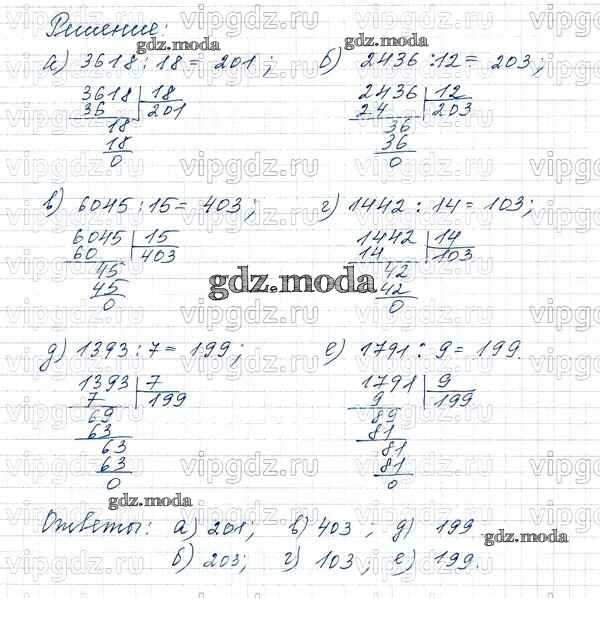 Решение:
а) 3618 : 18 = 201 ; б) 2436 : 12 = 203 ;
3618 18 2436 12
36 201 24 203
18 36
18 36
0 0
в) 6045 : 15 = 403 ; г) 1442 : 14 = 103 ;
6045 15 1442 14
60 403 14 103
45 42
45 42
0 0
д) 1393 : 7 = 199 ; е) 1791 : 9 = 199.
1393 7 1791 9
7 199 9 199
69 89
63 81
63 81
63 81
0 0
Ответы: а) 201 ; в) 403 ; д) 199
б) 203 ; г) 103 ; е) 199.
gdz.moda
gdz.moda
gdz.moda
gdz.moda
gdz.moda
gdz.moda
vipgdz.ru